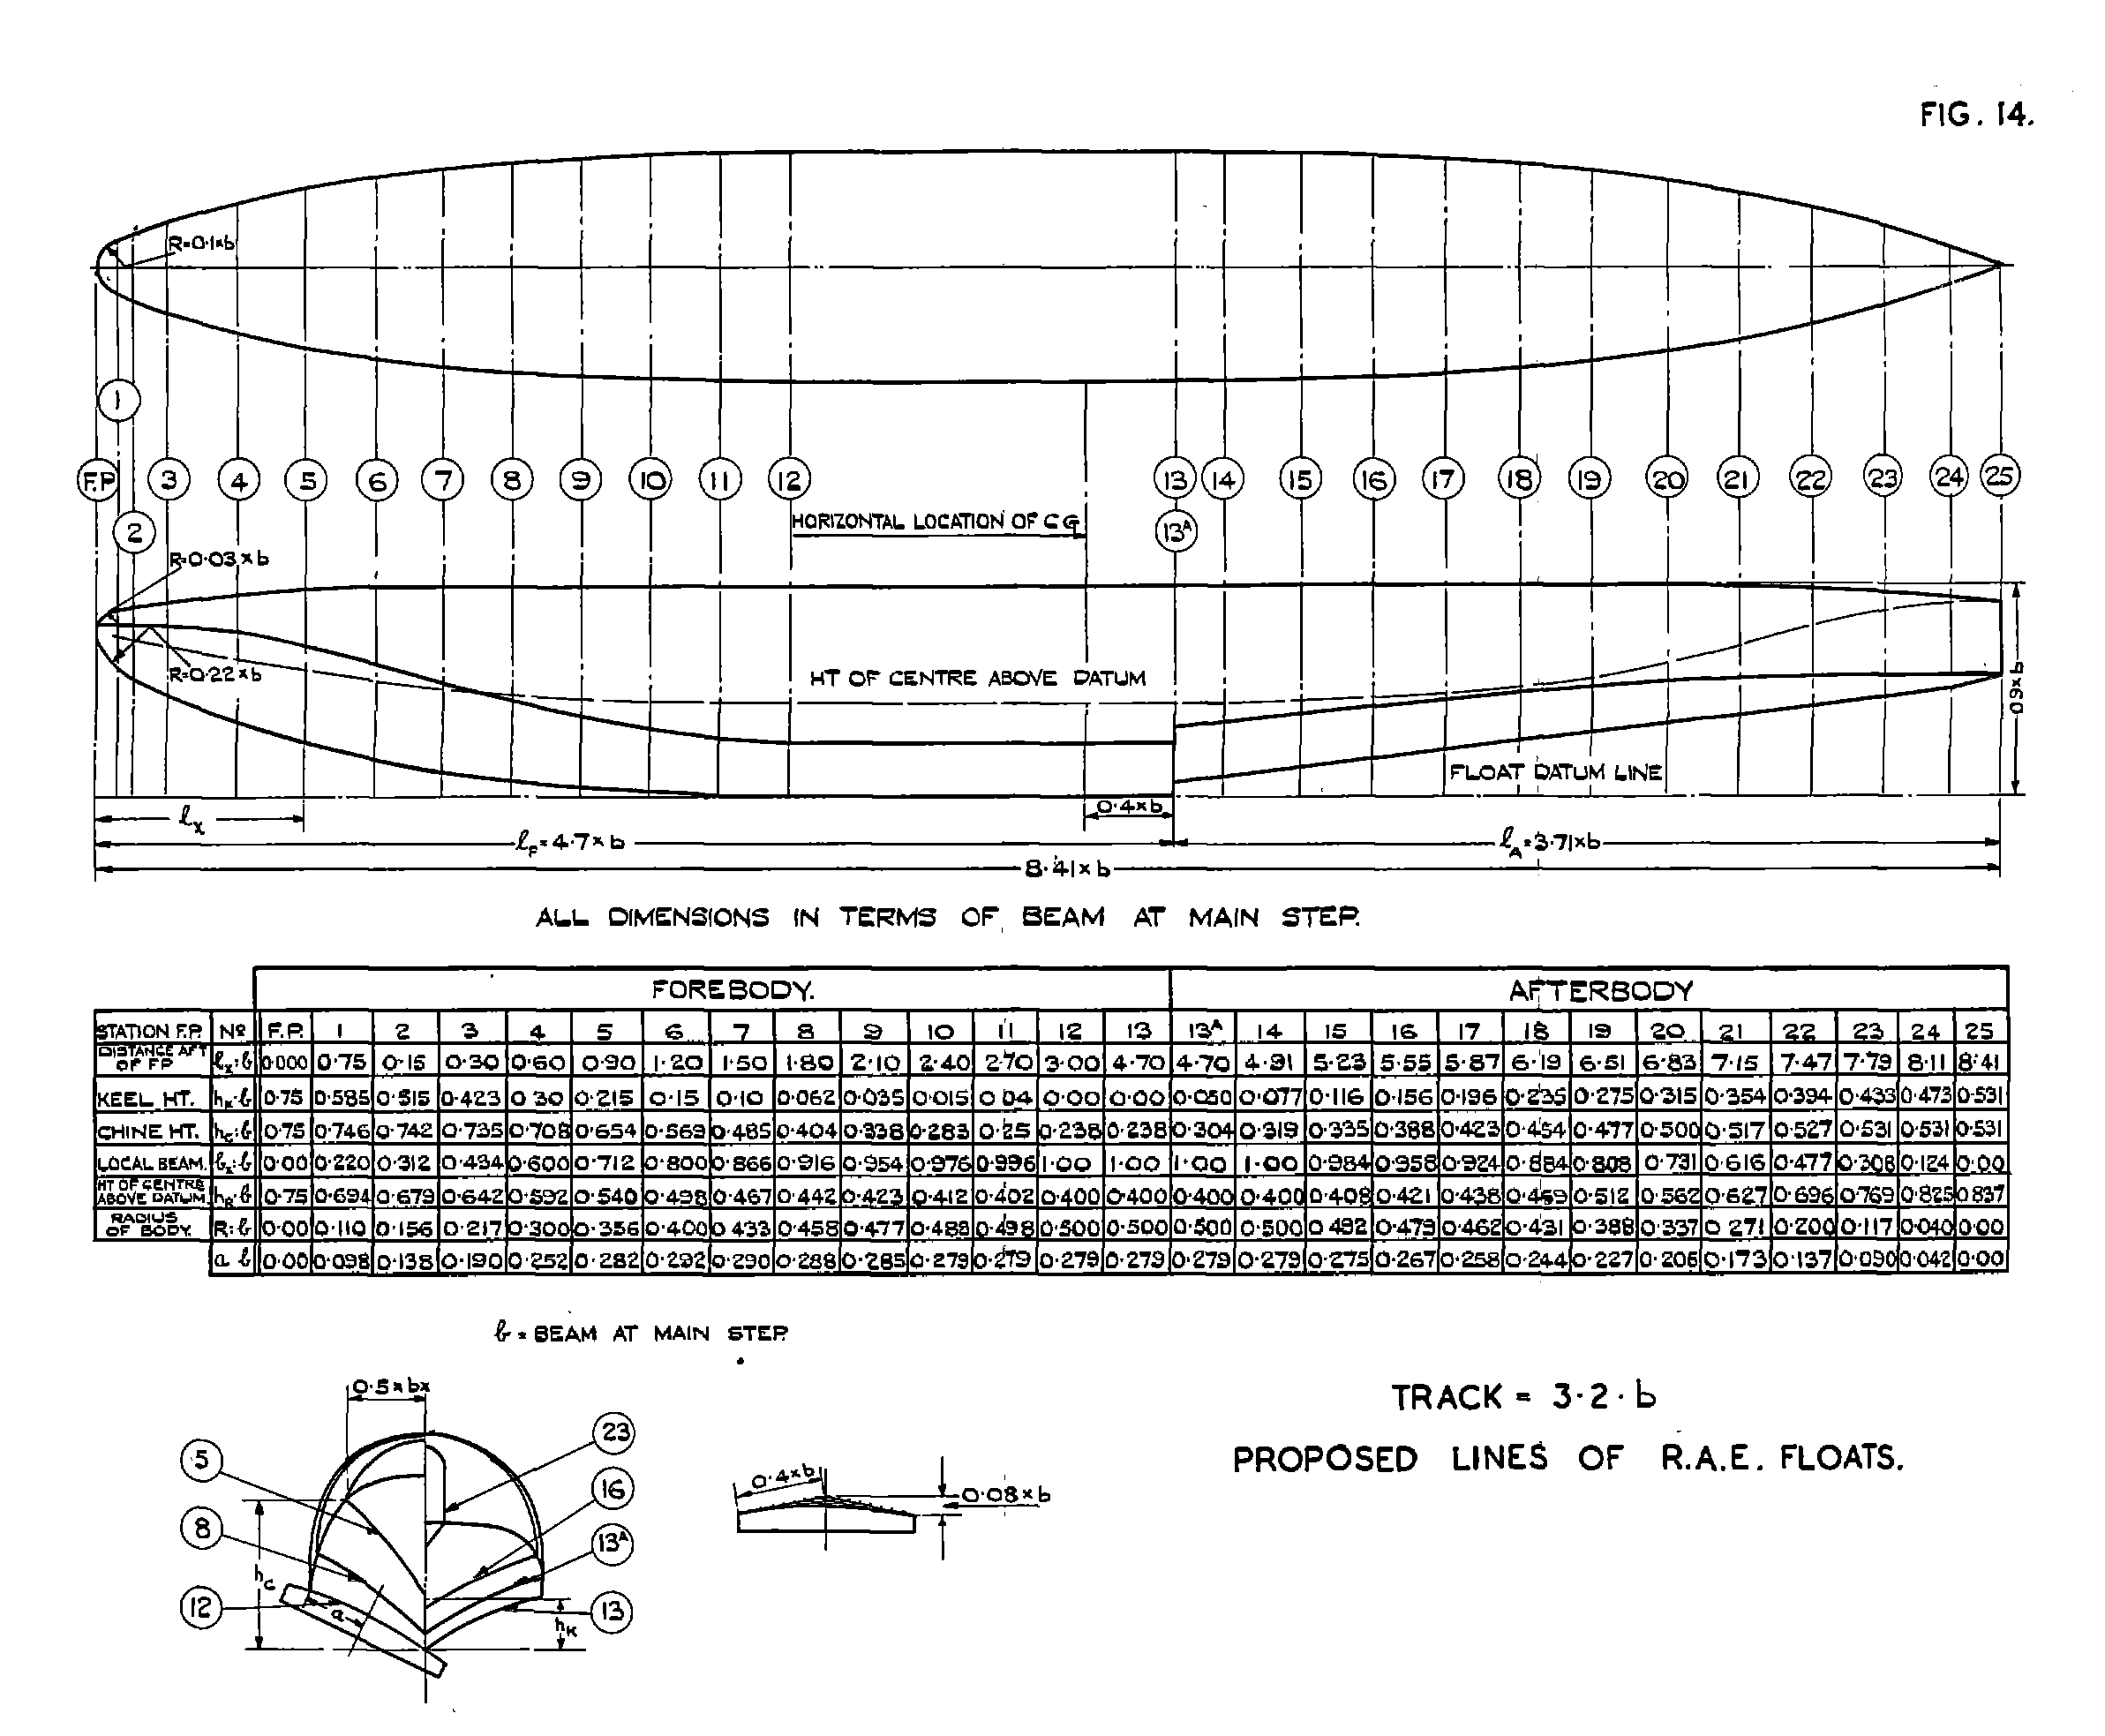 FIG. 14.
R=0·1×b
1
F.P 3 4 5 6 7 8 9 10 11 12 13 14 15 16 17 18 19 20 21 22 23 24 25
2
13A
HORIZONTAL LOCATION OF C G
R=0·03×b
R=0·22×b
HT OF CENTRE ABOVE DATUM
0·9×b
FLOAT DATUM LINE
0·4×b
ℓx
ℓF=4·7×b
ℓA=3·71×b
8·41×b
ALL DIMENSIONS IN TERMS OF BEAM AT MAIN STEP.
FOREBODY. AFTERBODY
STATION F.P. No F.P. 1 2 3 4 5 6 7 8 9 10 11 12 13 13A 14 15 16 17 18 19 20 21 22 23 24 25
DISTANCE AFT OF FP ℓx:b 0·000 0·75 0·15 0·30 0·60 0·90 1·20 1·50 1·80 2·10 2·40 2·70 3·00 4·70 4·70 4·91 5·23 5·55 5·87 6·19 6·51 6·83 7·15 7·47 7·79 8·11 8·41
KEEL HT. hK:b 0·75 0·585 0·515 0·423 0·30 0·215 0·15 0·10 0·062 0·035 0·015 0·04 0·00 0·00 0·050 0·077 0·116 0·156 0·196 0·235 0·275 0·315 0·354 0·394 0·433 0·473 0·531
CHINE HT. hc:b 0·75 0·746 0·742 0·735 0·708 0·654 0·569 0·485 0·404 0·338 0·283 0·25 0·238 0·238 0·304 0·319 0·335 0·388 0·423 0·454 0·477 0·500 0·517 0·527 0·531 0·531 0·531
LOCAL BEAM. bx:b 0·00 0·220 0·312 0·434 0·600 0·712 0·800 0·866 0·916 0·954 0·976 0·996 1·00 1·00 1·00 1·00 0·984 0·958 0·924 0·884 0·808 0·731 0·616 0·477 0·308 0·124 0·00
HT OF CENTRE ABOVE DATUM hR:b 0·75 0·694 0·679 0·642 0·592 0·540 0·498 0·467 0·442 0·423 0·412 0·402 0·400 0·400 0·400 0·400 0·408 0·421 0·438 0·469 0·512 0·562 0·627 0·696 0·769 0·825 0·837
RADIUS OF BODY. R:b 0·00 0·110 0·156 0·217 0·300 0·356 0·400 0·433 0·458 0·477 0·488 0·498 0·500 0·500 0·500 0·500 0·492 0·479 0·462 0·431 0·388 0·337 0·271 0·200 0·117 0·040 0·00
a b 0·00 0·098 0·138 0·190 0·252 0·282 0·292 0·290 0·288 0·285 0·279 0·279 0·279 0·279 0·279 0·279 0·275 0·267 0·258 0·244 0·227 0·206 0·173 0·137 0·090 0·042 0·00
b = BEAM AT MAIN STEP.
0·5×bx
23
5
16
8
13A
hc
12
a
13
hK
0·4×b
0·08×b
TRACK = 3·2·b
PROPOSED LINES OF R.A.E. FLOATS.